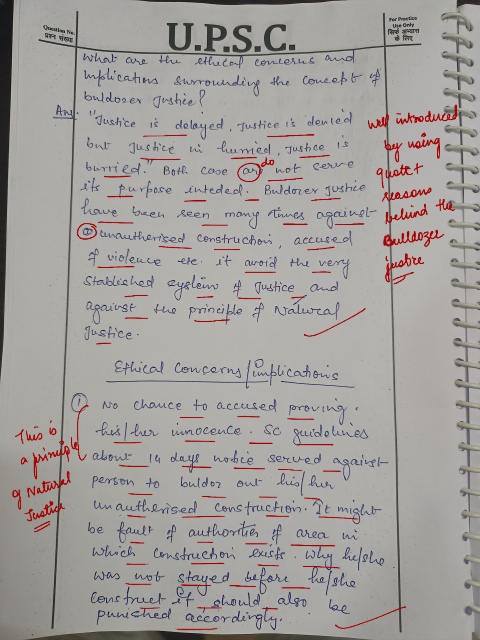 Question No.
प्रश्न संख्या
U.P.S.C.
For Practice
Use Only
सिर्फ अभ्यास
के लिए
What are the ethical concerns and
implications surrounding the concept of
buldozer Justice?
Ans:
"Justice is delayed, Justice is denied
but Justice in hurried, Justice is
burried." Both case are do not serve
its purpose inteded. Buldozer Justice
have been seen many times against
unautherised construction, accused
of violence etc. it avoid the very
stablished system of Justice and
against the principle of Natural
Justice.
Well introduced
by using
quote +
reasons
behind the
Bulldozer
justice
Ethical Concerns/Implications
① No chance to accused proving
his/her innocence. SC guidelines
about 14 days notice served against
person to buldoz out his/her
unauthorised construction. It might
be fault of authorities of area in
which construction exists. Why he/she
was not stayed before he/she
construct it should also be
punished accordingly.
This is
a principle
of Natural
Justice